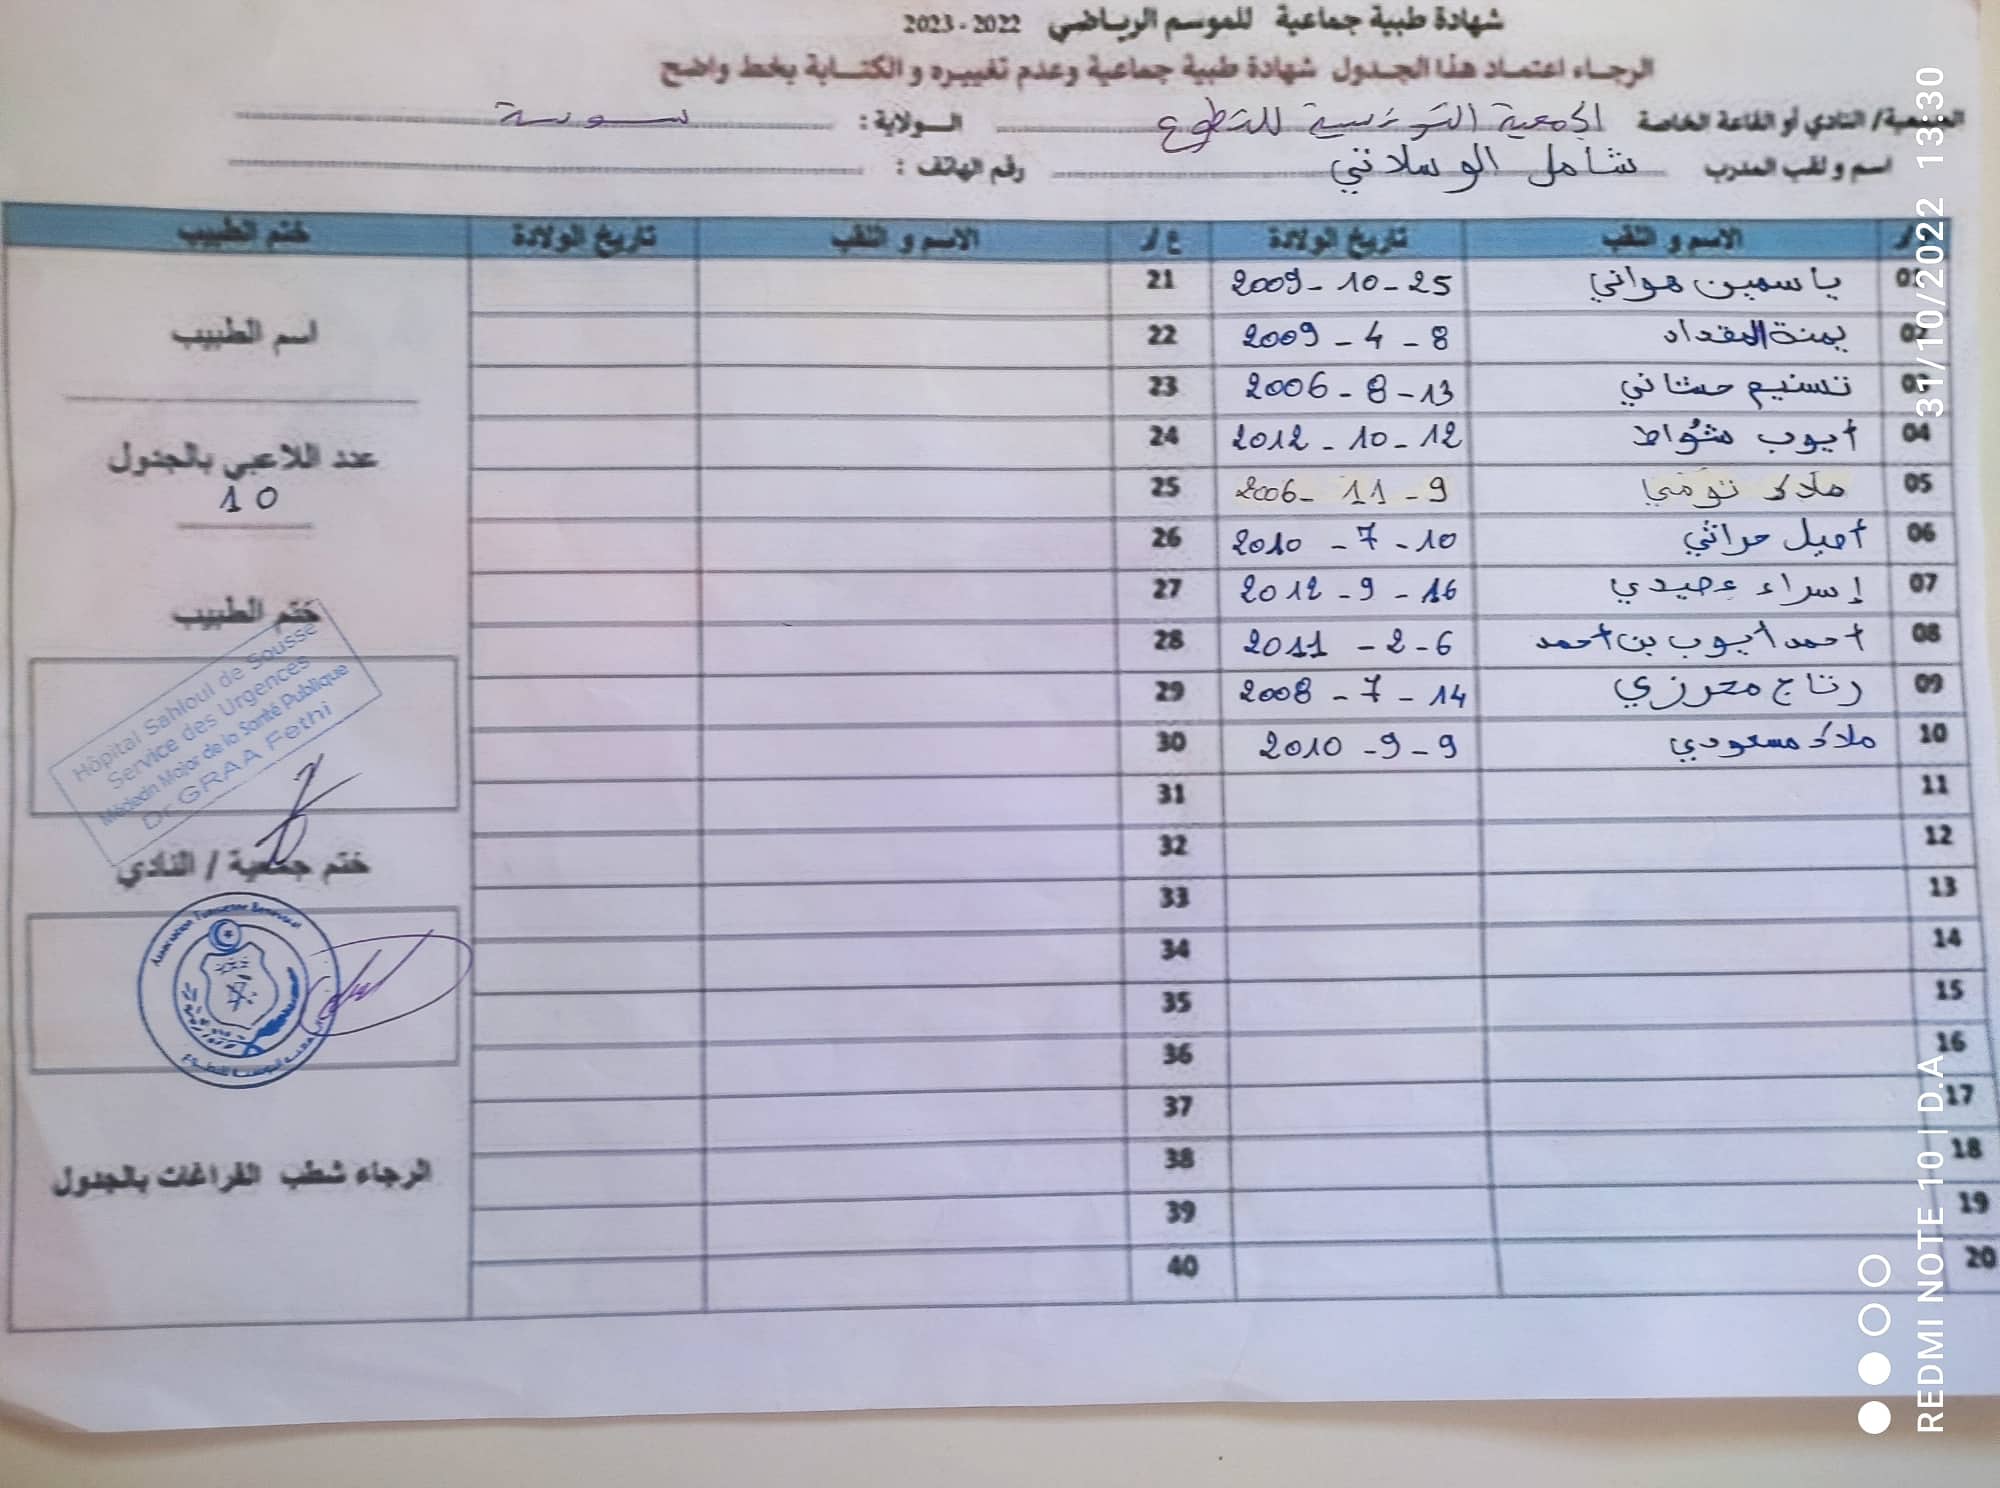 شهادة طبية جماعية للموسم الرياضي 2022 - 2023
الرجاء اعتماد هذا الجدول شهادة طبية جماعية وعدم تغييره و الكتابة بخط واضح
الجمعية/ النادي أو القاعة الخاصة الجمعية التونسية للتطوع الولاية : سوسة
اسم و لقب المدرب شامل الوسلاتي رقم الهاتف :
ع/ر الاسم و اللقب تاريخ الولادة ع/ر الاسم و اللقب تاريخ الولادة ختم الطبيب
01 ياسمين هواني 2009 - 10 - 25 21
02 يمنة المقداد 2009 - 4 - 8 22
03 تسنيم حشاني 2006 - 8 - 13 23
04 أيوب شواط 2012 - 10 - 12 24
05 ملاك تومي 2006 - 11 - 9 25
06 أميل حراثي 2010 - 7 - 10 26
07 إسراء عبيدي 2012 - 9 - 16 27
08 احمد أيوب بن أحمد 2011 - 2 - 6 28
09 رتاج محرزي 2008 - 7 - 14 29
10 ملاك مسعودي 2010 - 9 - 9 30
11 31
12 32
13 33
14 34
15 35
16 36
17 37
18 38
19 39
20 40
اسم الطبيب
عدد اللاعبي بالجدول
10
ختم الطبيب
Hôpital Sahloul de Sousse
Service des Urgences
Médecin Major de la Santé Publique
Dr GRAA Fethi
ختم جمعية / النادي
Association Tunisienne Bénévolat
الجمعية التونسية للتطوع
الرجاء شطب الفراغات بالجدول
31/10/2022 13:30
REDMI NOTE 10 | D.A